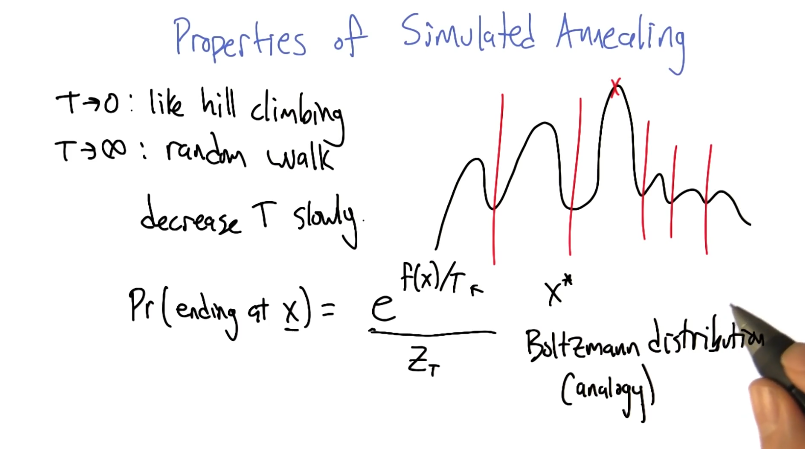 Properties of Simulated Annealing
T→0 : like hill climbing
T→∞ : random walk
decrease T slowly.
x
Pr(ending at x) = e^{f(x)/T} / Z_T
x*
Boltzmann distribution
(analogy)